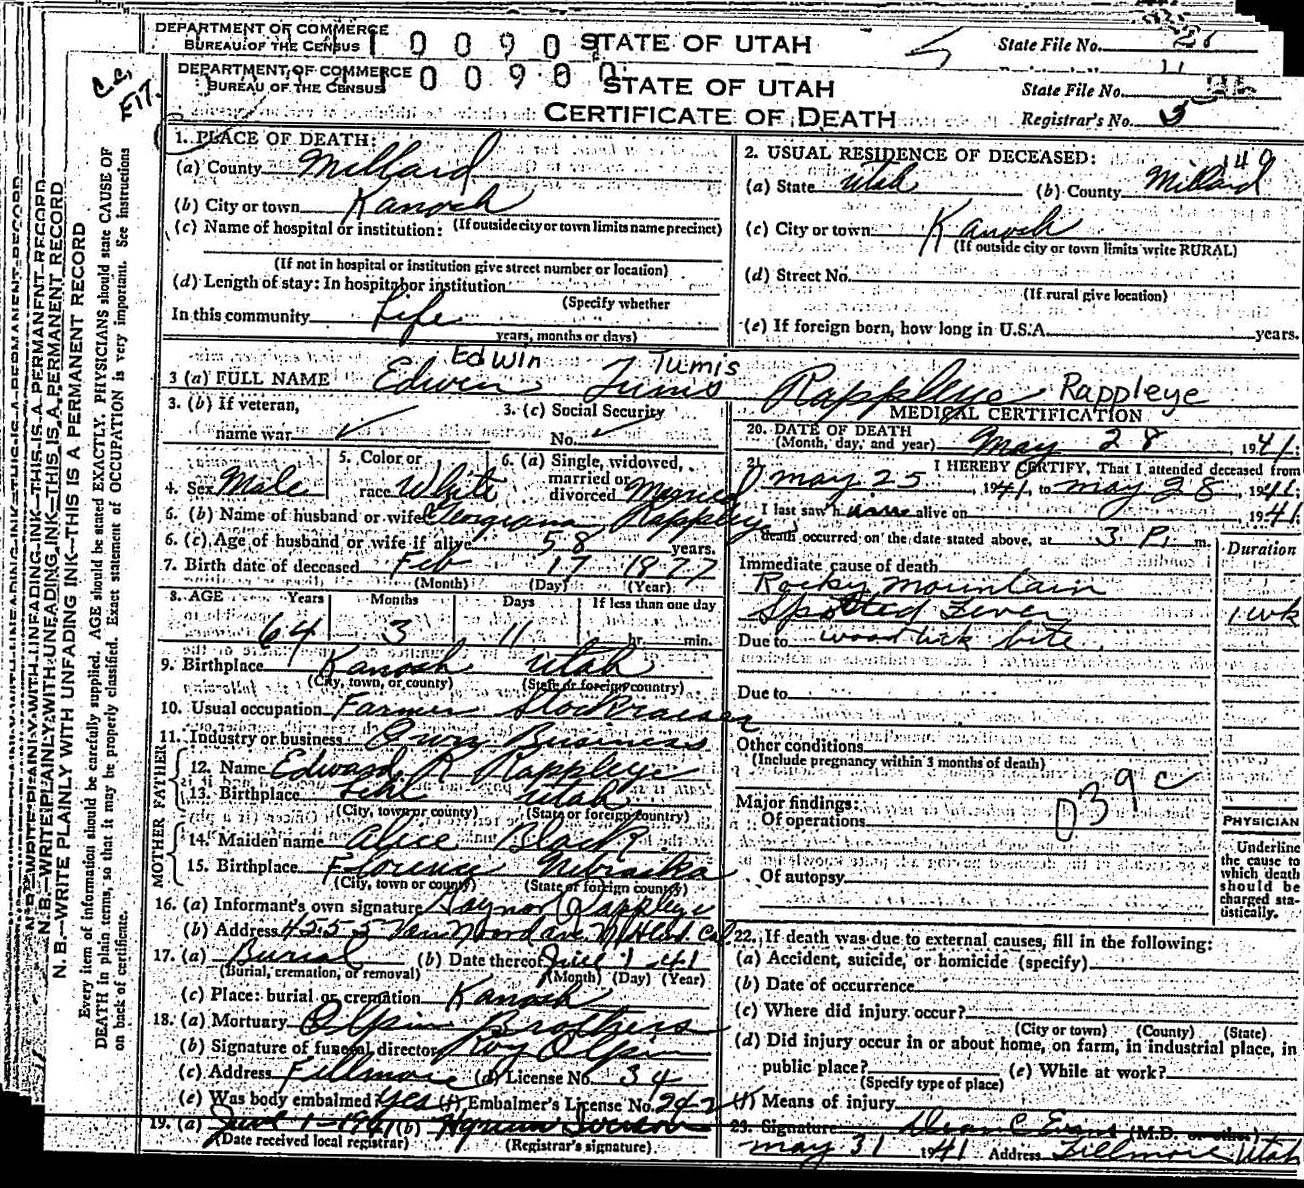 DEPARTMENT OF COMMERCE
BUREAU OF THE CENSUS
0 0 9 0
STATE OF UTAH
State File No. 26
DEPARTMENT OF COMMERCE
BUREAU OF THE CENSUS
0 0 9 0 0
STATE OF UTAH
CERTIFICATE OF DEATH
State File No.
Registrar's No. 3
N. B.—WRITE PLAINLY WITH UNFADING INK—THIS IS A PERMANENT RECORD
Every item of information should be carefully supplied. AGE should be stated EXACTLY. PHYSICIANS should state CAUSE OF
DEATH in plain terms, so that it may be properly classified. Exact statement of OCCUPATION is very important. See instructions
on back of certificate.
1. PLACE OF DEATH:
(a) County Millard
(b) City or town Kanosh
(If outside city or town limits name precinct)
(c) Name of hospital or institution:
(If not in hospital or institution give street number or location)
(d) Length of stay: In hospital or institution
(Specify whether
In this community Life
years, months or days)
2. USUAL RESIDENCE OF DECEASED: 149
(a) State Utah (b) County Millard
(c) City or town Kanosh
(If outside city or town limits write RURAL)
(d) Street No.
(If rural give location)
(e) If foreign born, how long in U.S.A. years.
Edwin Tumis
3 (a) FULL NAME Edwin Tumis Rappleye Rappleye
3. (b) If veteran,
name war
3. (c) Social Security
No.
4. Sex Male
5. Color or
race White
6. (a) Single, widowed,
married or
divorced Married
6. (b) Name of husband or wife Georgiana Rappleye
6. (c) Age of husband or wife if alive 58 years.
7. Birth date of deceased Feb 17 1877
(Month) (Day) (Year)
8. AGE Years Months Days If less than one day
64 3 11 hr. min.
9. Birthplace Kanosh Utah
(City, town, or county) (State or foreign country)
10. Usual occupation Farmer Stockraiser
11. Industry or business Own Business
FATHER
12. Name Edward R Rappleye
13. Birthplace Lehi Utah
(City, town or county) (State or foreign country)
MOTHER
14. Maiden name Alice Black
15. Birthplace Florence Nebraska
(City, town or county) (State or foreign country)
16. (a) Informant's own signature Gaynor Rappleye
(b) Address 4255 Van Noord ave N Hlwd. Cal
17. (a) Burial (b) Date thereof June 1 41
(Burial, cremation, or removal) (Month) (Day) (Year)
(c) Place: burial or cremation Kanosh
18. (a) Mortuary Olpin Brothers
(b) Signature of funeral director Roy Olpin
(c) Address Fillmore (d) License No. 34
(e) Was body embalmed? yes (f) Embalmer's License No. 242
19. (a) June 1-1941 (b)
(Date received local registrar) (Registrar's signature)
MEDICAL CERTIFICATION
20. DATE OF DEATH
(Month, day, and year) May 28, 1941.
21. I HEREBY CERTIFY, That I attended deceased from
May 25, 1941, to May 28, 1941;
I last saw h alive on 1941
death occurred on the date stated above, at 3 P. m.
Duration
Immediate cause of death
Rocky Mountain
Spotted Fever 1 wk
Due to wood tick bite
Due to
Other conditions
(Include pregnancy within 3 months of death)
039c
Major findings:
Of operations
Of autopsy
PHYSICIAN
Underline
the cause to
which death
should be
charged sta-
tistically.
22. If death was due to external causes, fill in the following:
(a) Accident, suicide, or homicide (specify)
(b) Date of occurrence
(c) Where did injury occur?
(City or town) (County) (State)
(d) Did injury occur in or about home, on farm, in industrial place, in
public place? (e) While at work?
(Specify type of place)
(f) Means of injury
23. Signature Dean C Evans (M.D. or other)
May 31 1941 Address Fillmore Utah